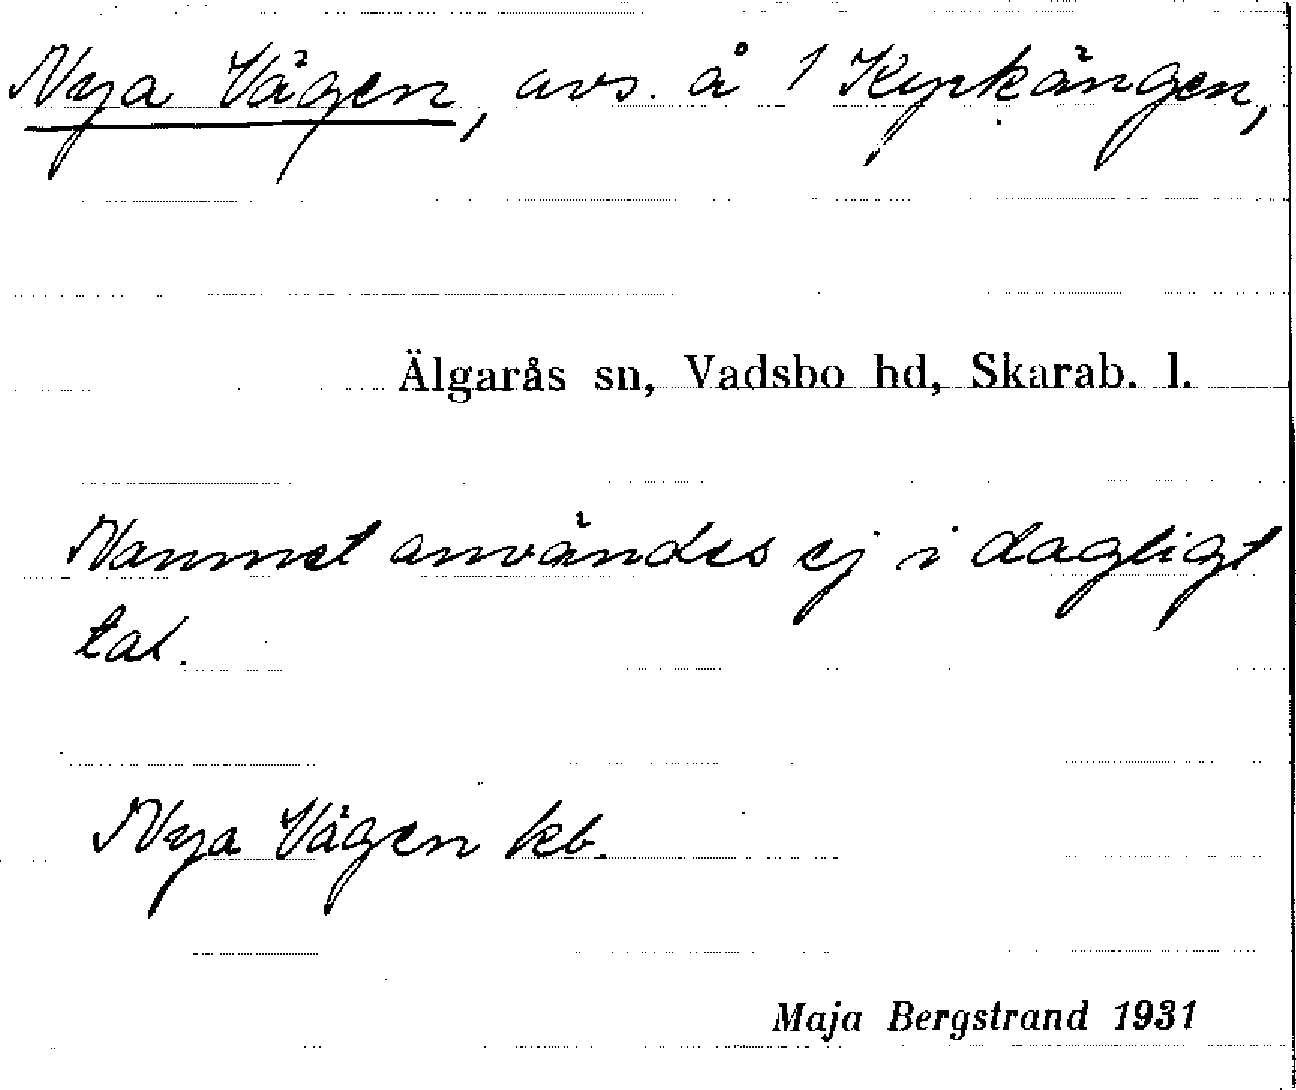 Nya Vägen, avs. å 1 Kyrkängen,
Älgarås sn, Vadsbo hd, Skarab. l.
Namnet användes ej i dagligt
tal.
Nya Vägen kb.
Maja Bergstrand 1931